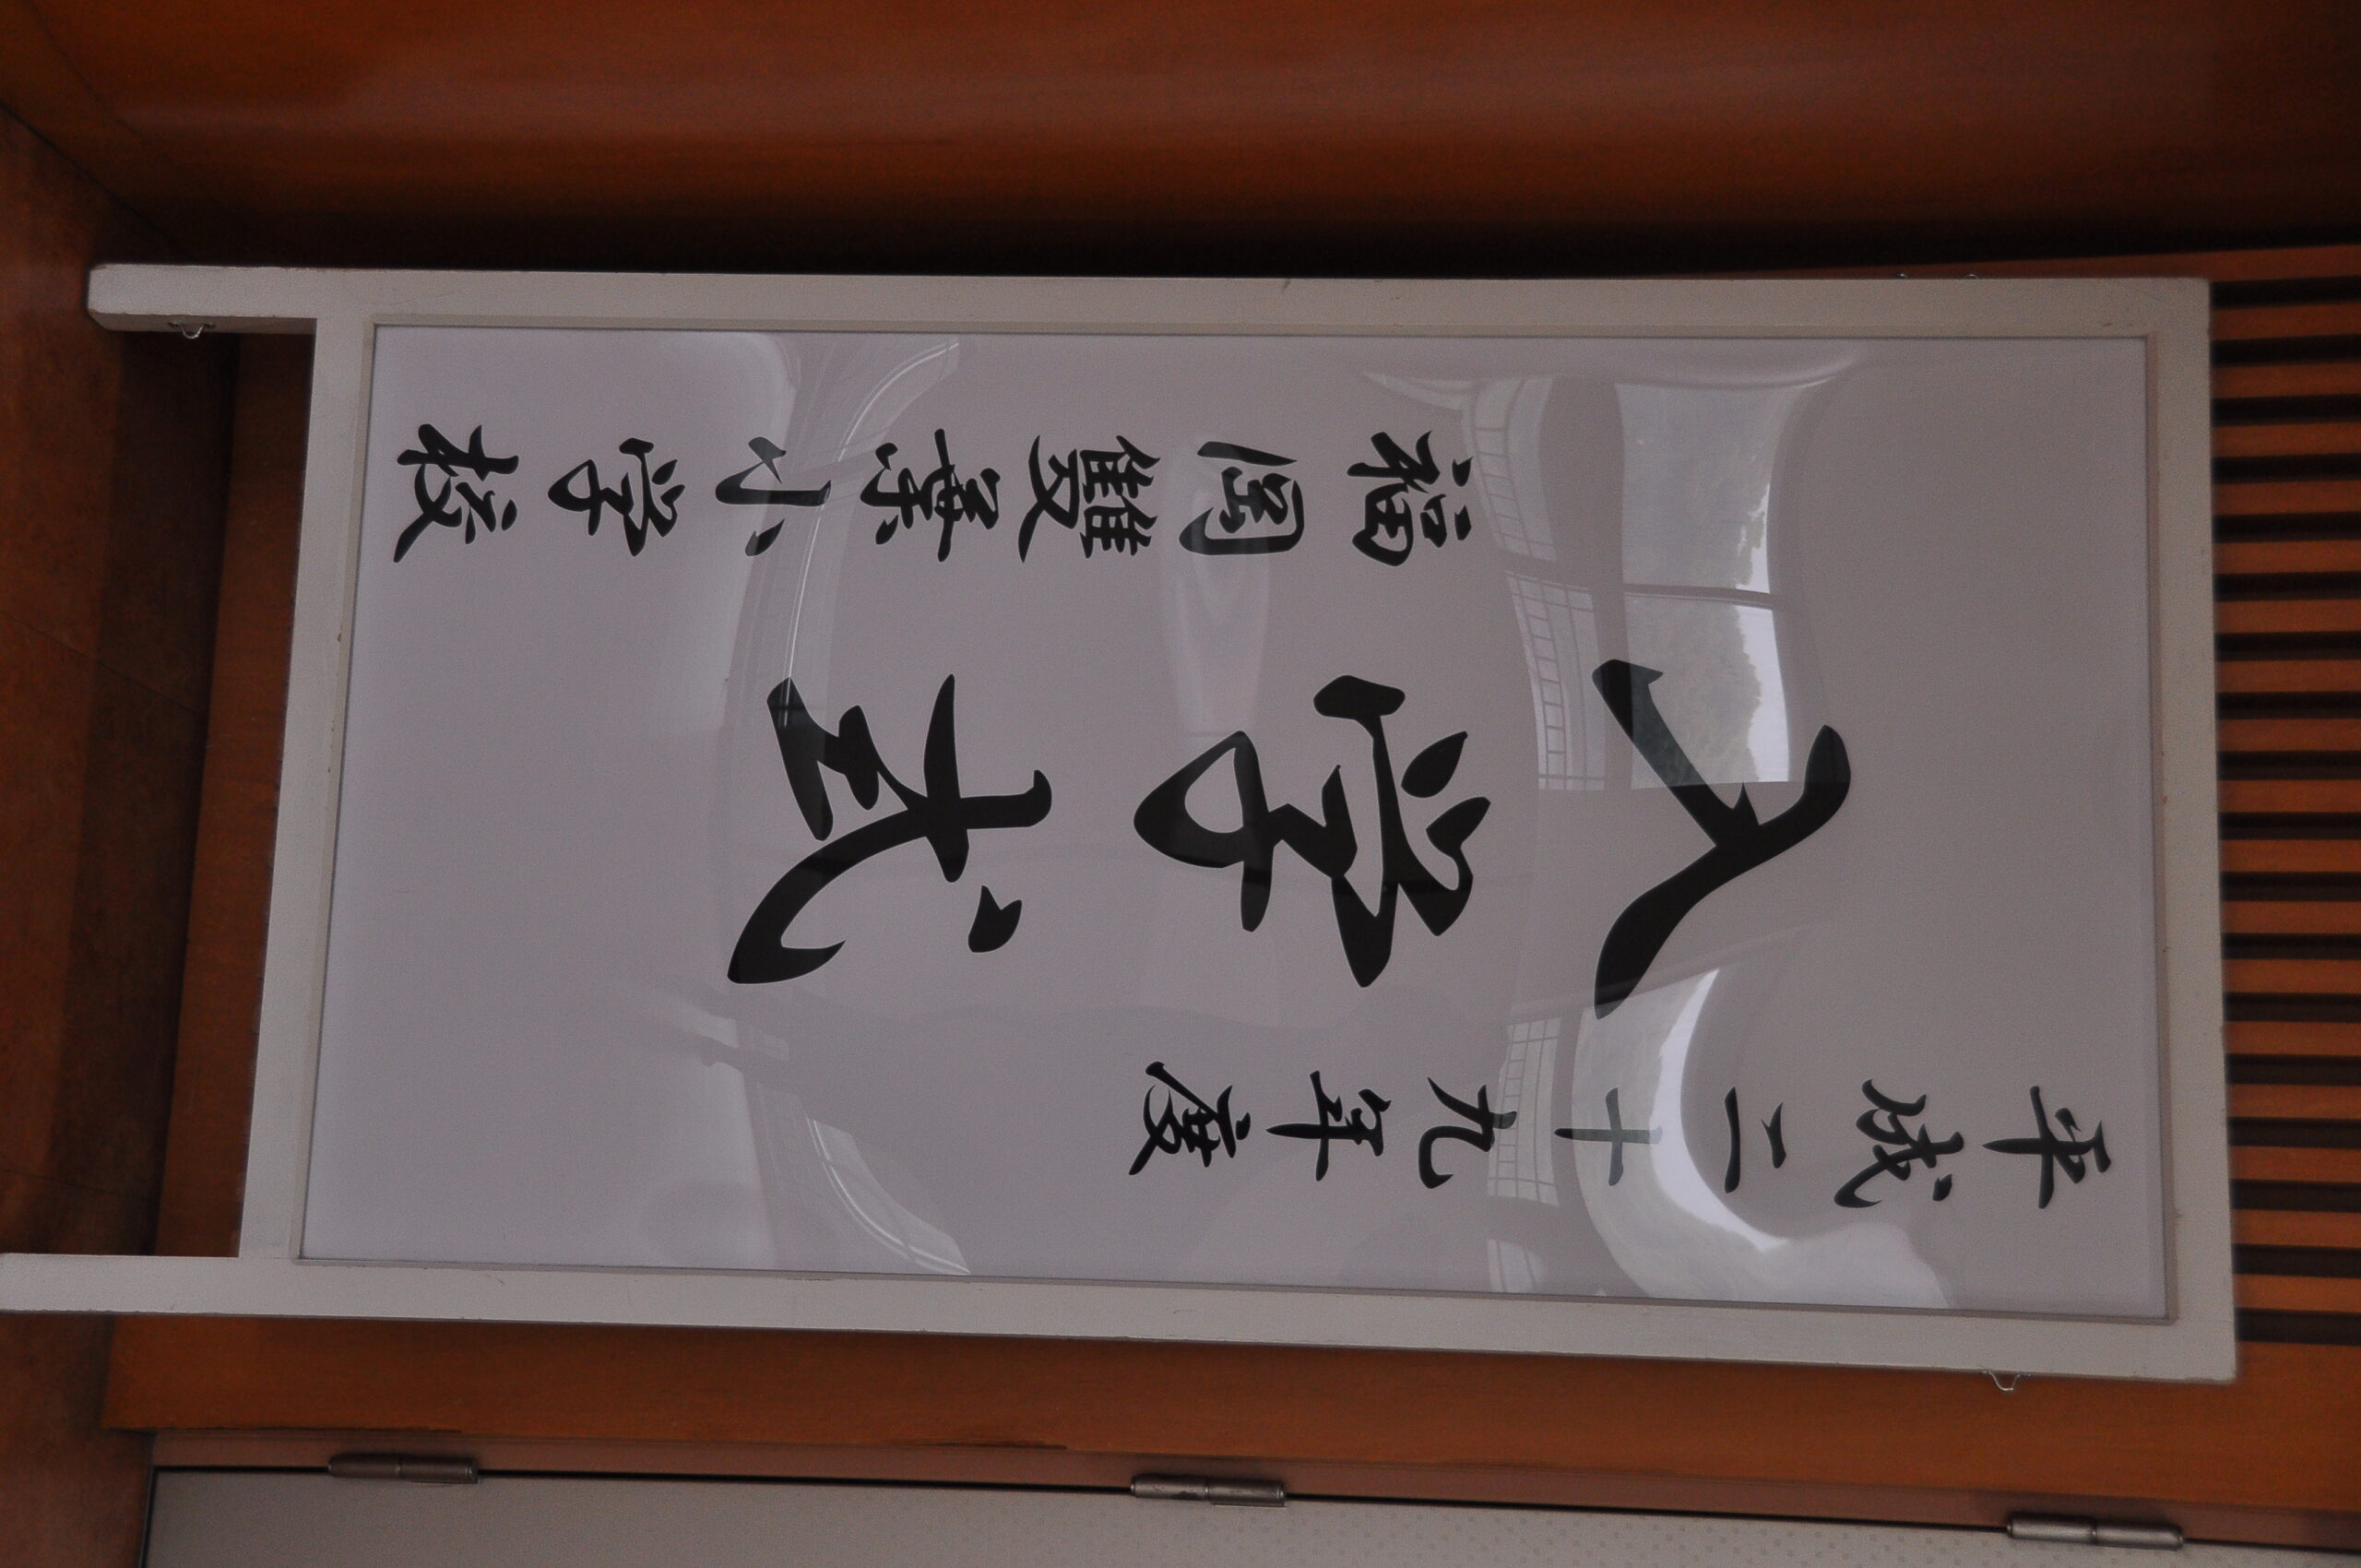 平成二十九年度
入学式
福岡雙葉小学校